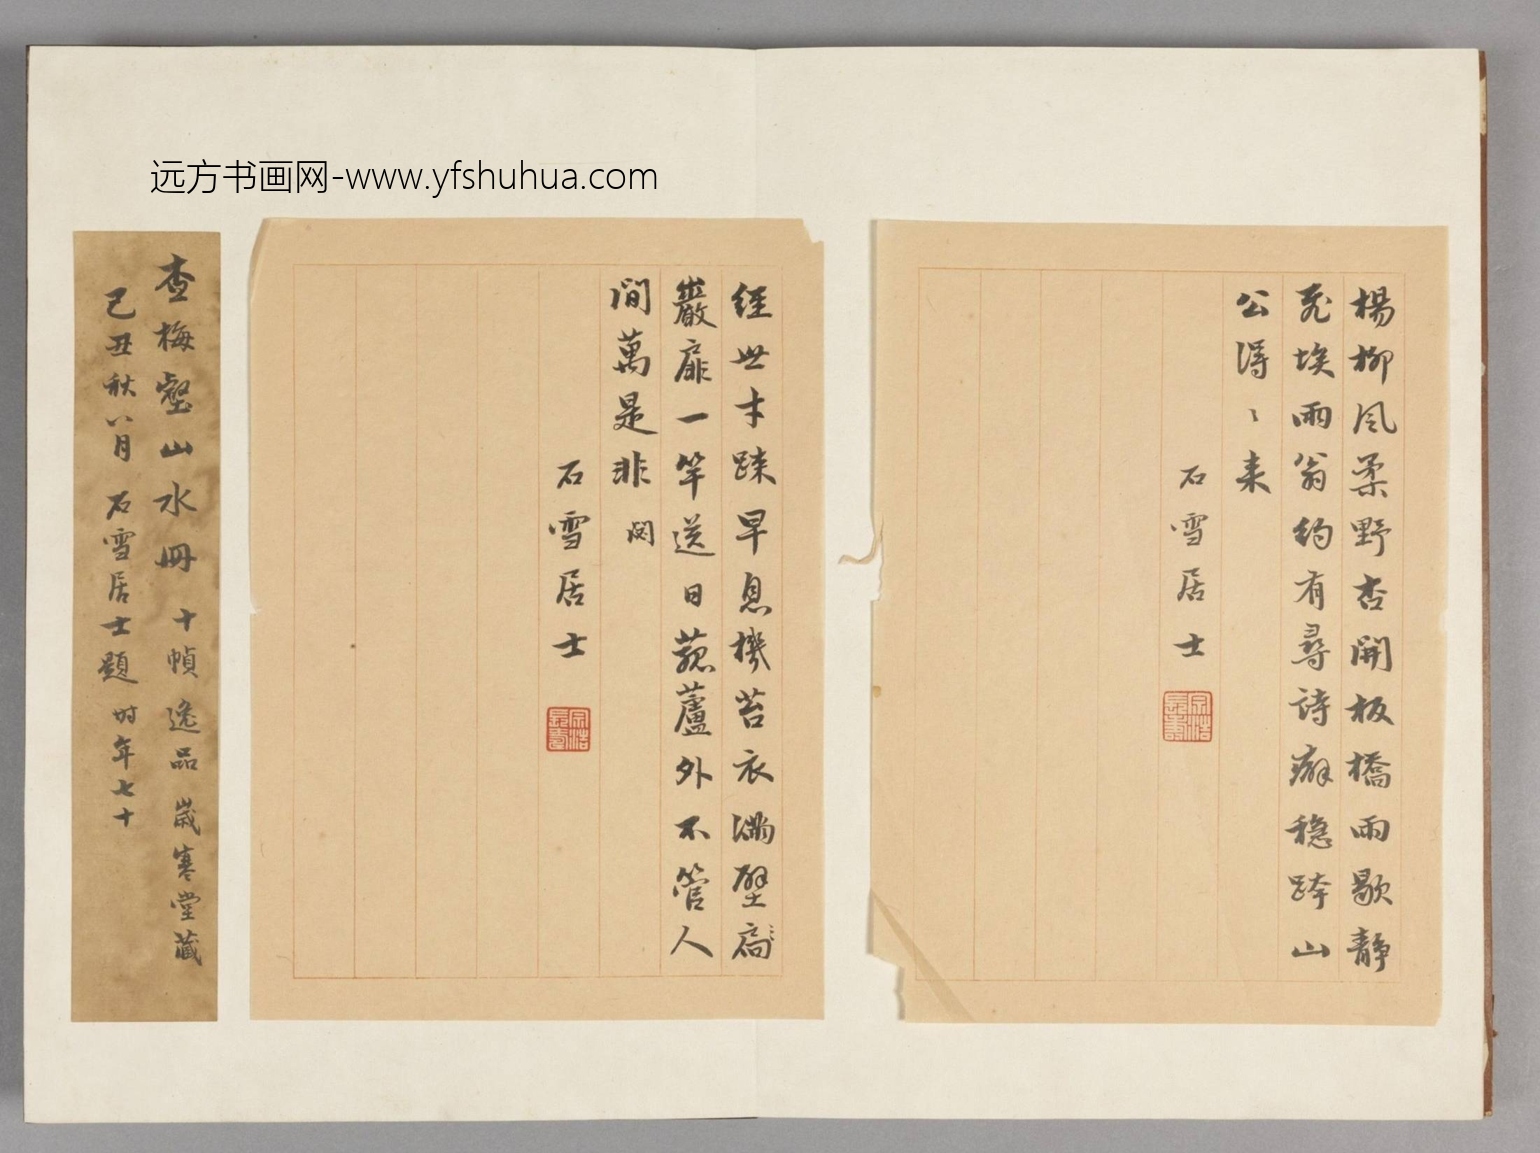 远方书画网-www.yfshuhua.com
楊柳風柔野杏開板橋雨歇靜
飛埃兩翁約有尋詩癖穩跨山
公得〻来
石雪居士
宗浩長壽
經世才疎早息機苔衣滿壁扃
巖扉一竿送日菰蘆外不管人
間萬是非
石雪居士
宗浩長壽
查梅壑山水冊 十幀逸品 歲寒堂藏
己丑秋八月 石雪居士題 时年七十